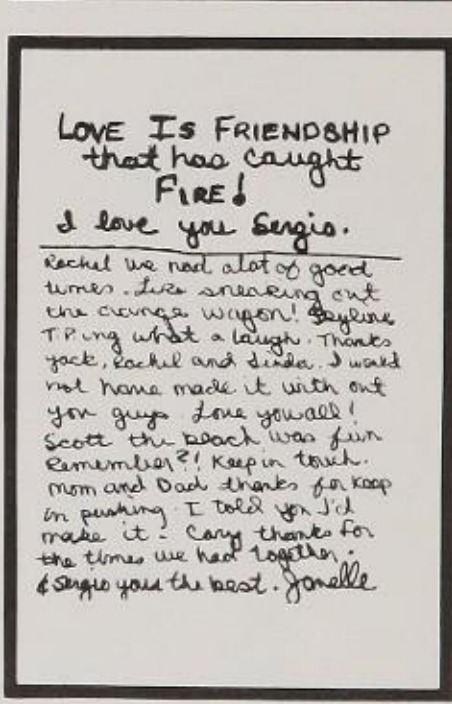 LOVE IS FRIENDSHIP
that has caught
FIRE!
I love you Sergio.
Rachel we had alot of good
times. Like sneaking out
the orange wagon! Skyline
T.P.ing what a laugh. Thanks
Jack, Rachel and Linda. I would
not have made it with out
you guys. Love you all!
Scott the beach was fun
Remember?! Keep in touch.
Mom and Dad thanks for Keep
in pushing I told you I'd
make it. Cary thanks for
the times we had together.
& Sergio your the best. Janelle